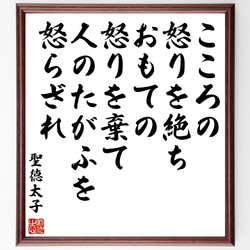 こころの
怒りを絶ち
おもての
怒りを棄て
人のたがふを
怒らざれ
聖徳太子